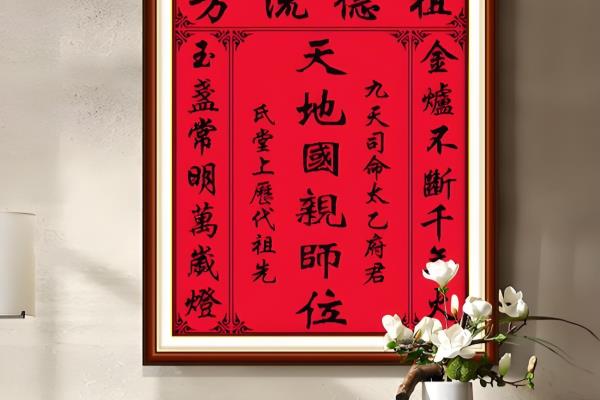 祖德流芳
金爐不斷千年火
九天司命太乙府君
天地國親師位
氏堂上歷代祖先
玉盞常明萬歲燈